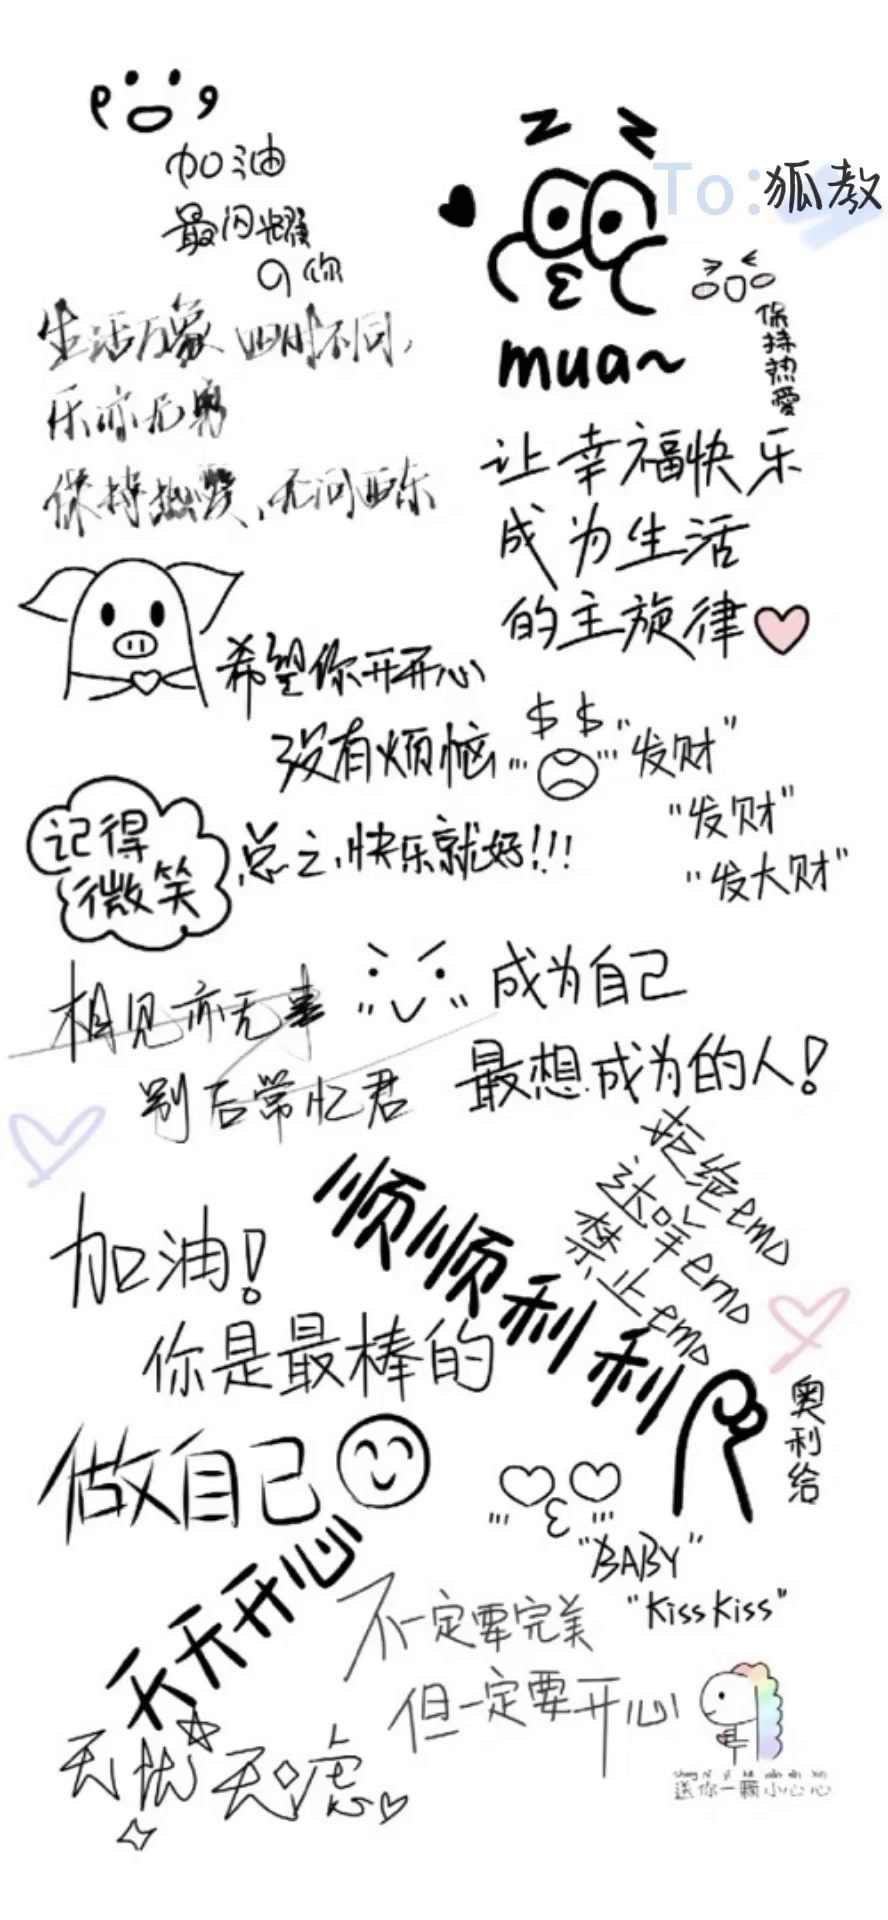 加油
最闪耀
の你
To:狐教
保持热爱
生活万象 四时不同,
乐亦无穷
保持热爱、无问西东
mua~
让幸福快乐
成为生活
的主旋律
希望你开开心心
没有烦恼
$ $
"发财"
"发财"
"发大财"
记得
微笑
总之,快乐就好!!!
相见亦无事
别后常忆君
成为自己
最想成为的人!
拒绝emo
达咩emo
禁止emo
加油!
你是最棒的
顺顺利利
奥利给
做自己
"BABY"
"Kiss Kiss"
天天开心
不一定要完美
但一定要开心
无忧无虑
送你一颗小心心